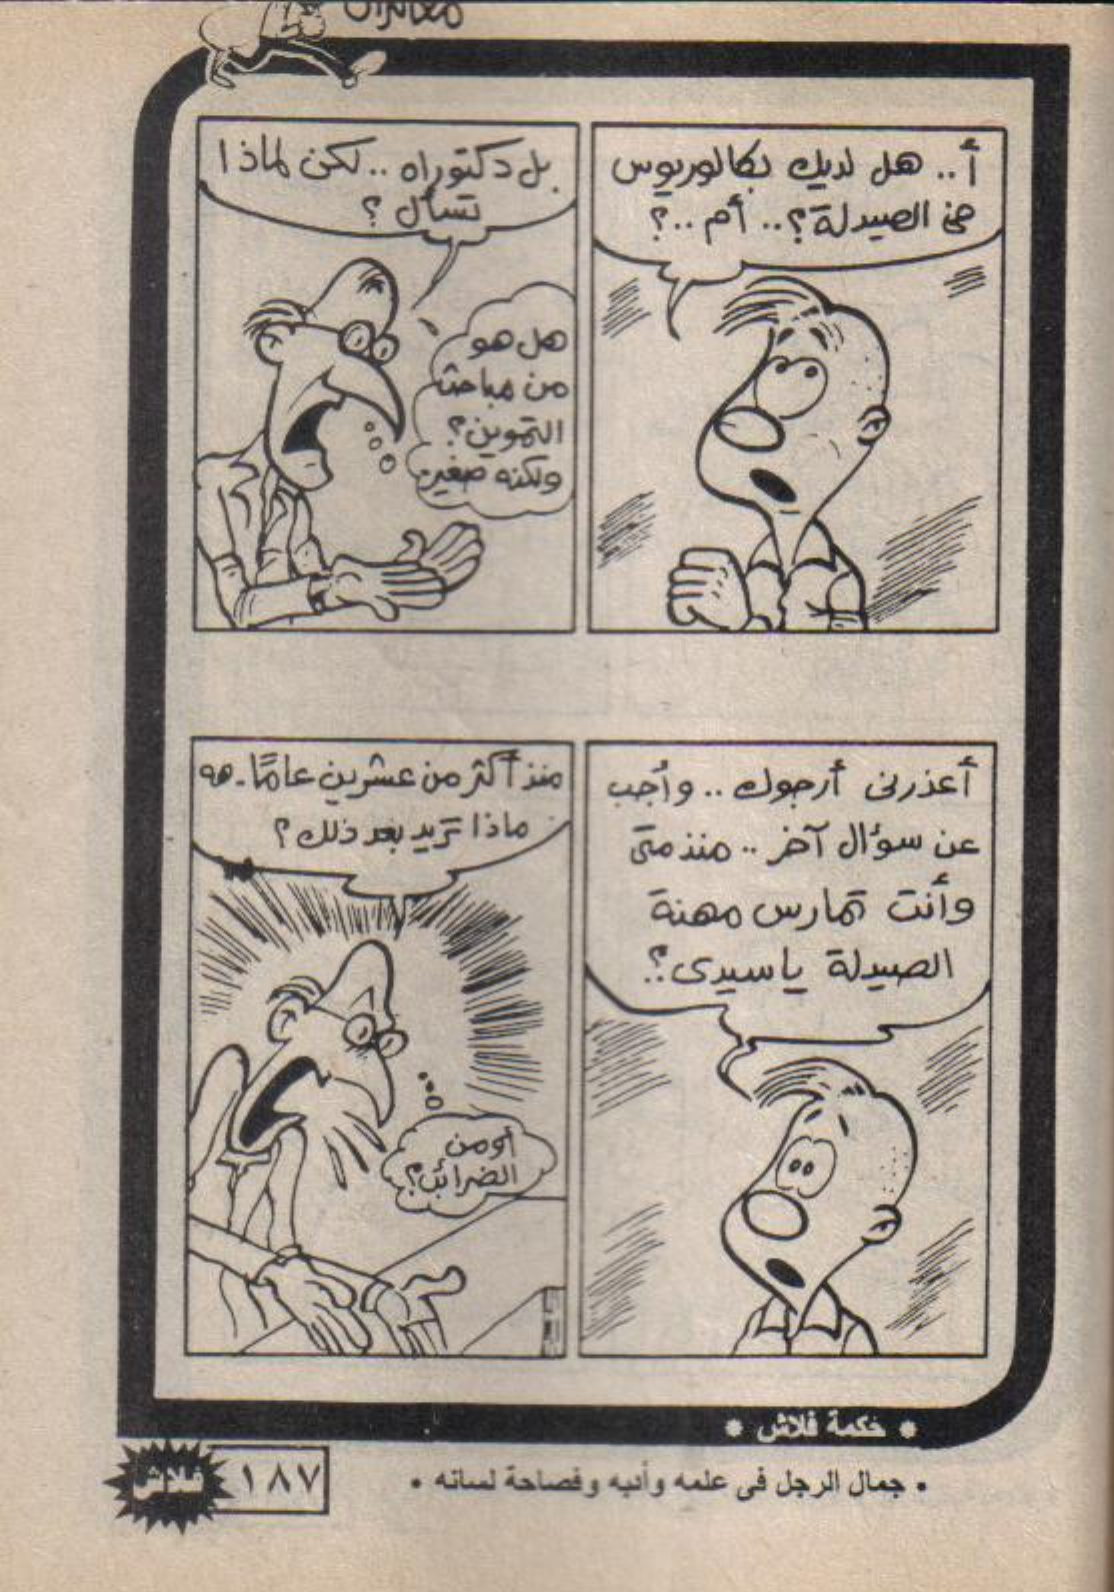 مغامرات
أ.. هل لديك بكالوريوس
فى الصيدلة؟.. أم ..؟
بل دكتوراه .. لكن لماذا
تسأل ؟
هل هو
من مباحث
التموين؟
ولكنه صغير
أعذرنى أرجوك .. وأجب
عن سؤال آخر .. منذ متى
وأنت تمارس مهنة
الصيدلة ياسيدى؟.
منذ أكثر من عشرين عامًا.. هه
ماذا تريد بعد ذلك ؟
أو من
الضرائب؟
* حكمة فلاش *
• جمال الرجل فى علمه وأدبه وفصاحة لسانه •
١٨٧
فلاش